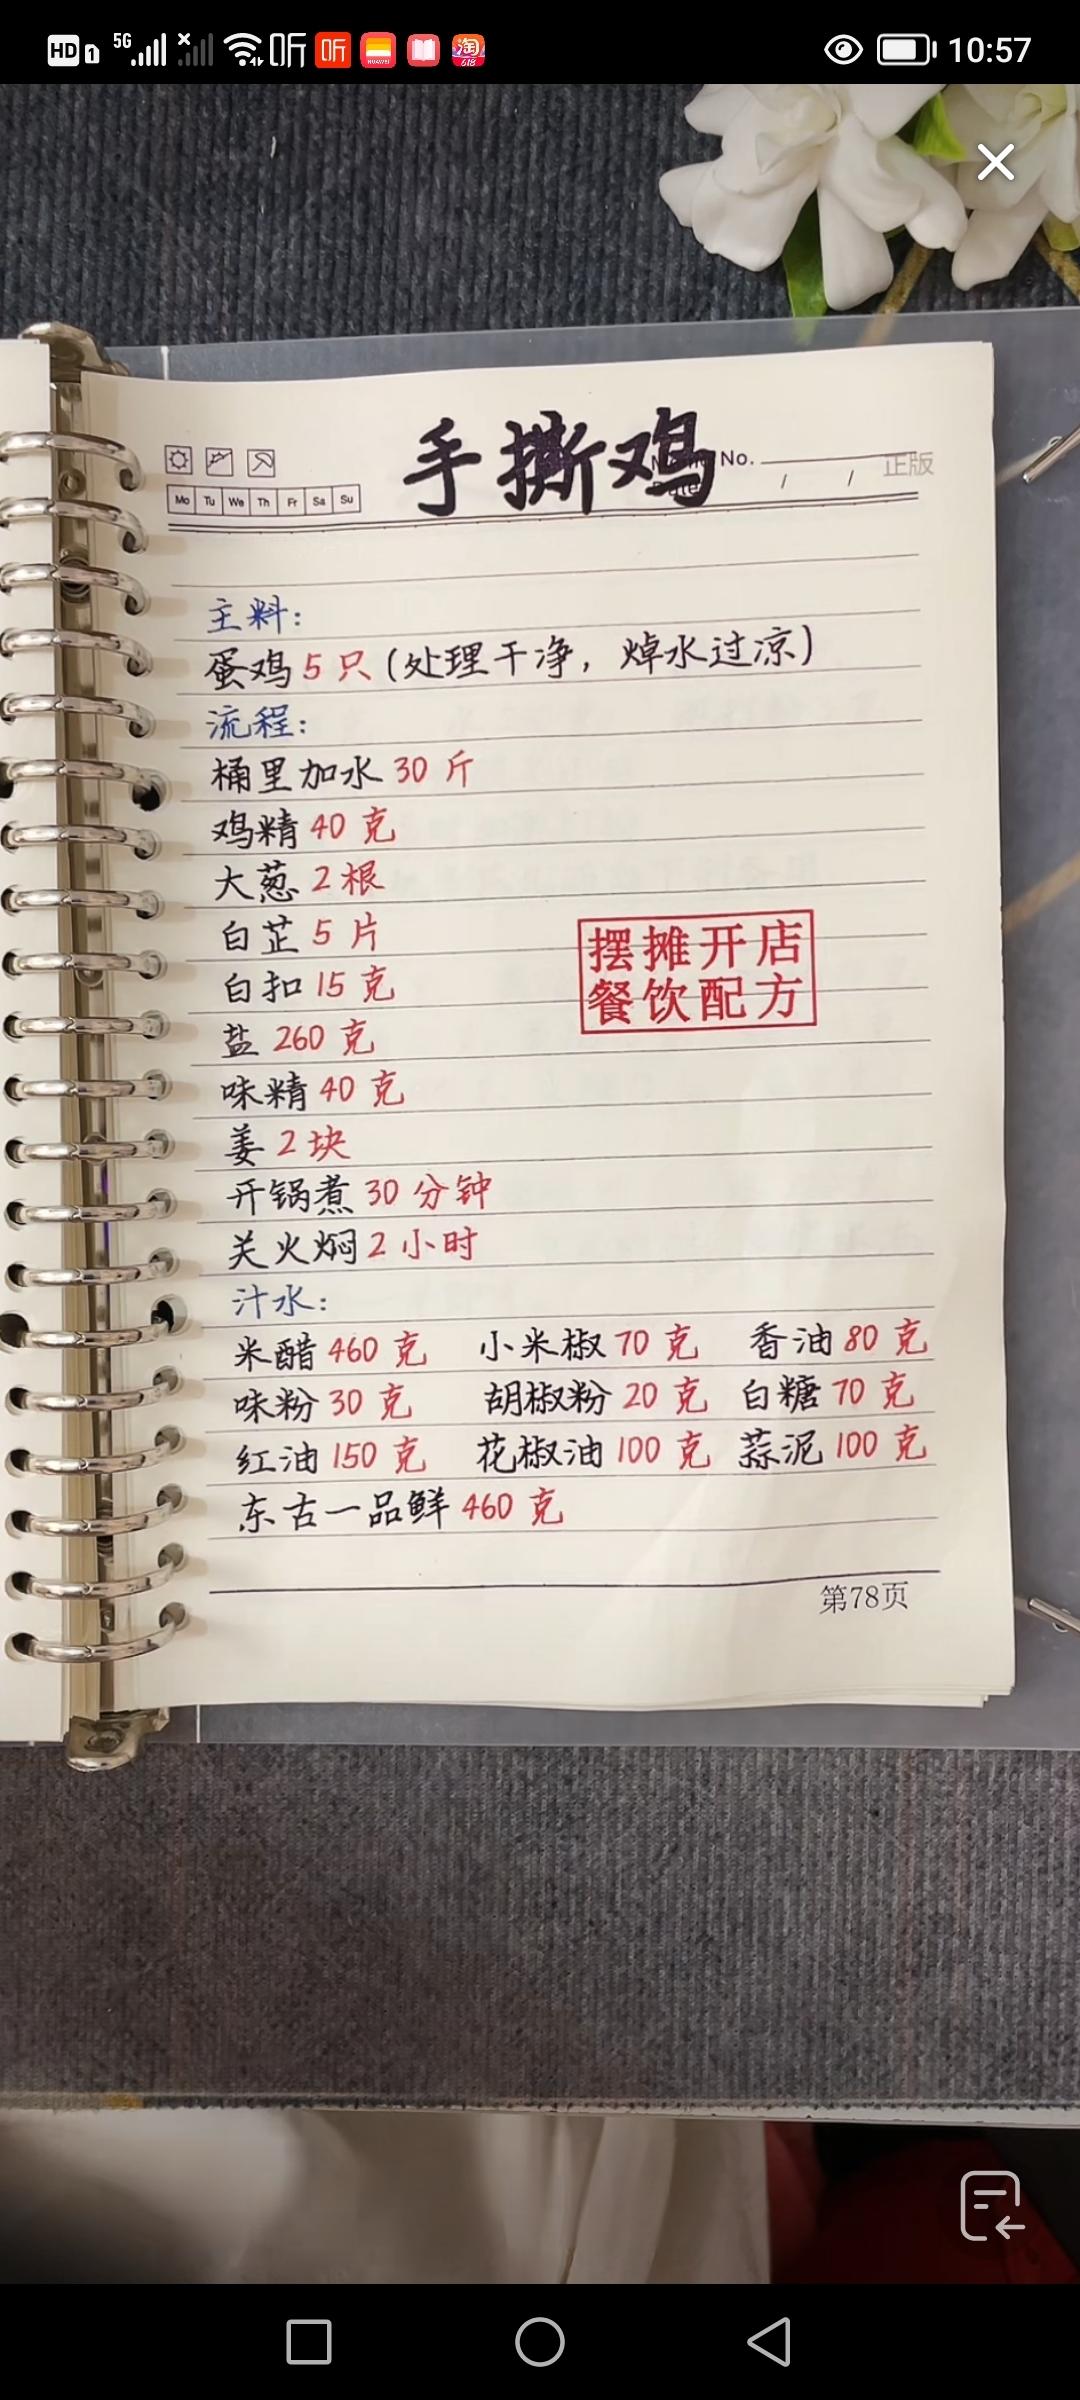 HD 1 5G 听 听 HUAWEI 淘 618 10:57
手撕鸡
No.
正版
Mo Tu We Th Fr Sa Su
/ /
主料：
蛋鸡5只(处理干净，焯水过凉)
流程：
桶里加水30斤
鸡精40克
大葱2根
白芷5片
白扣15克
盐260克
味精40克
姜2块
开锅煮30分钟
关火焖2小时
摆摊开店
餐饮配方
汁水：
米醋460克 小米椒70克 香油80克
味粉30克 胡椒粉20克 白糖70克
红油150克 花椒油100克 蒜泥100克
东古一品鲜460克
第78页